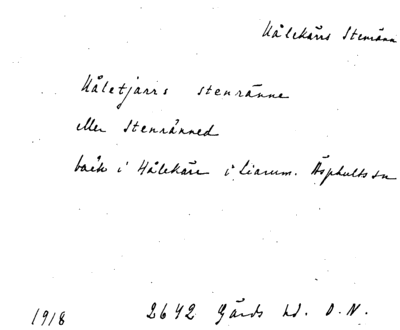 Hålekärrs Stenränn
Håletjarrs stenränne
eller Stenränned
bäck i Hålekärr i Liarum. Äsphults sn
1918 2642 Gärds hd. O.N.